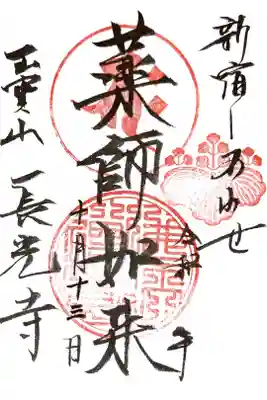 新宿しあわせ
令和 年
薬師如来
十一月十三日
寶山 長光寺